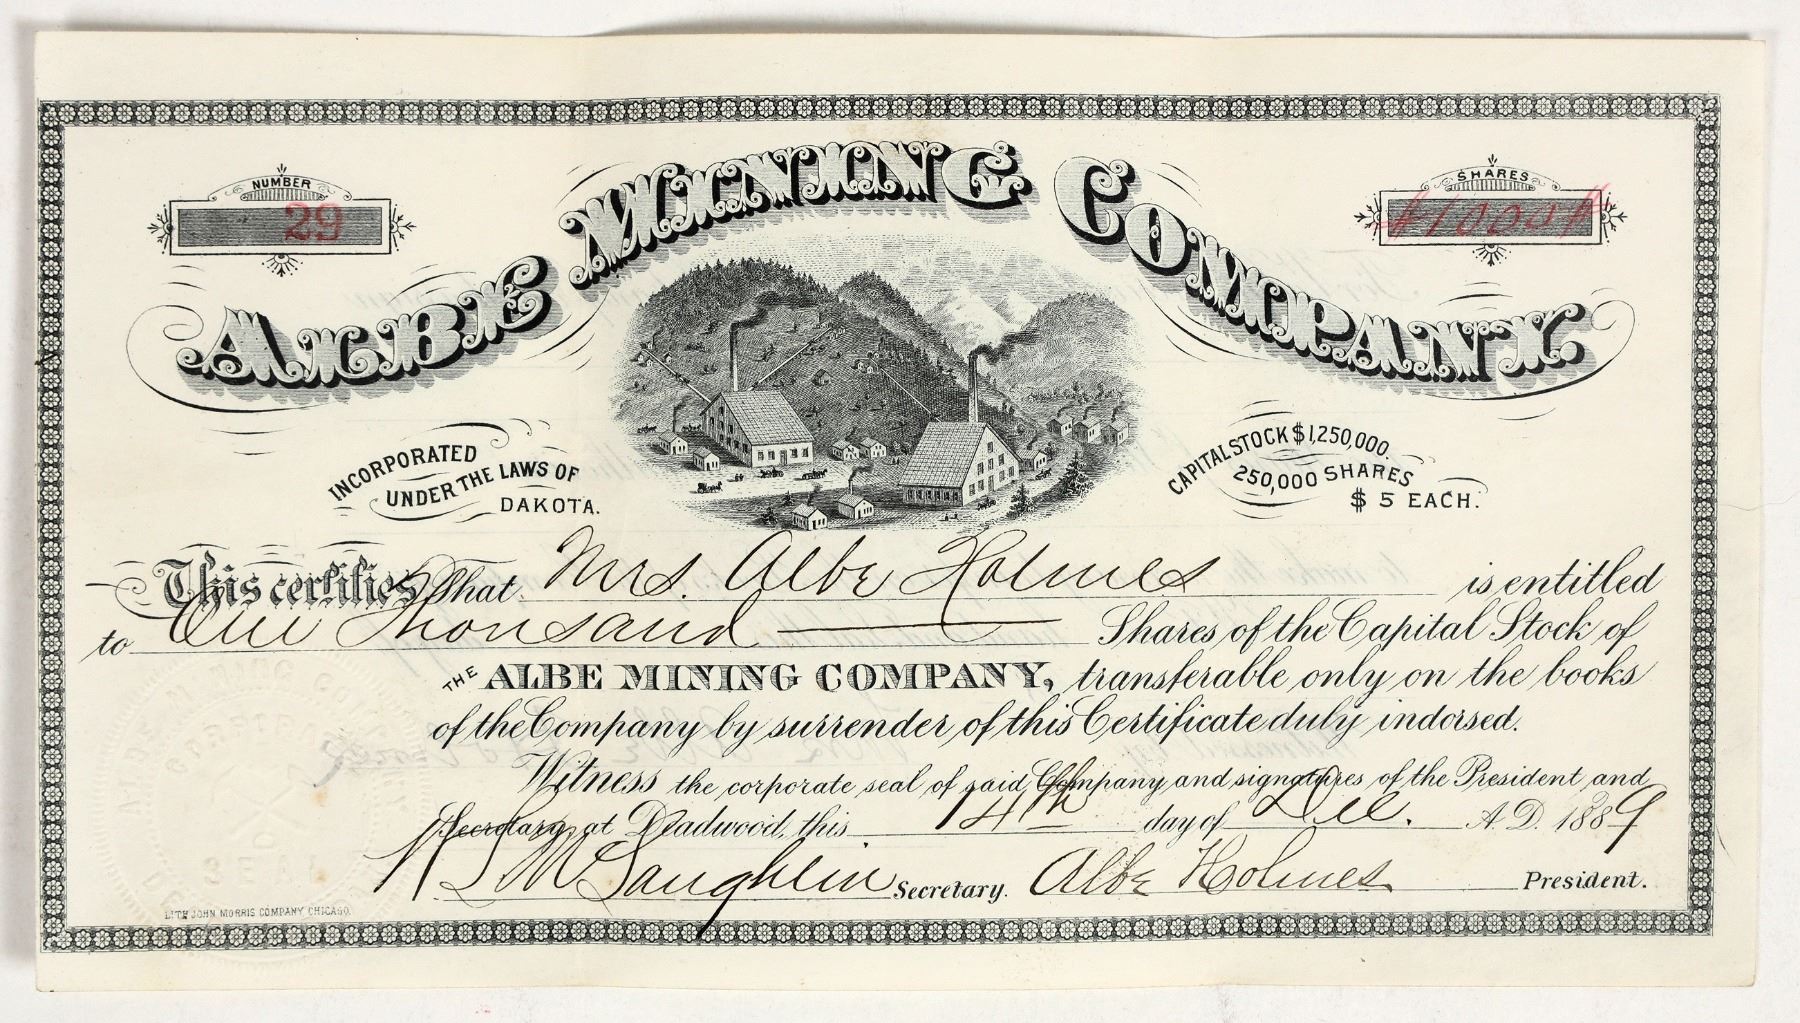 NUMBER
29
SHARES
#1000#
ALBE MINING COMPANY.
INCORPORATED
UNDER THE LAWS OF
DAKOTA.
CAPITAL STOCK $1,250,000.
250,000 SHARES
$5 EACH.
This certifies that Mrs. Albe Holmes is entitled
to One Thousand Shares of the Capital Stock of
THE ALBE MINING COMPANY, transferable only on the books
of the Company by surrender of this Certificate duly indorsed.
Witness the corporate seal of said Company and signatures of the President and
Secretary at Deadwood, this 14th day of Dec. A.D. 1889
McLaughlin Secretary. Albe Holmes President.
LITH JOHN MORRIS COMPANY CHICAGO.